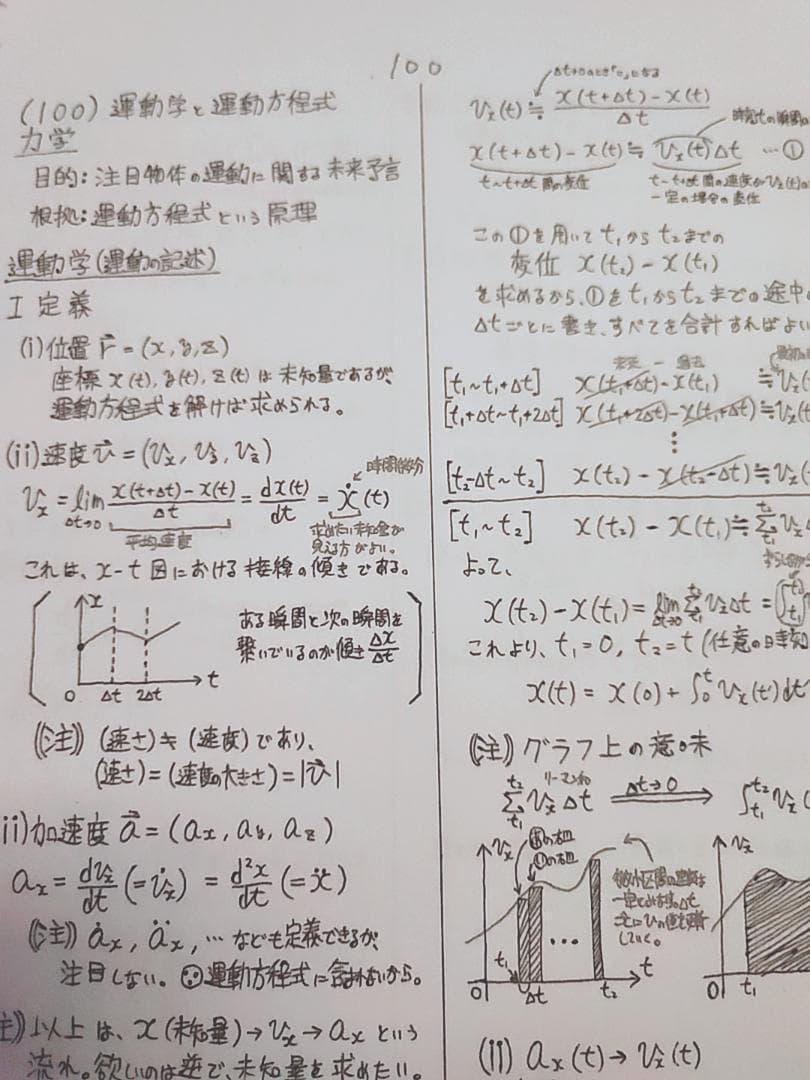 100
(100) 運動学と運動方程式
力学
目的: 注目物体の運動に関する未来予言
根拠: 運動方程式という原理
運動学(運動の記述)
I 定義
(i) 位置 r⃗ = (x, y, z)
座標 x(t), y(t), z(t) は未知量であるが、
運動方程式を解けば求められる。
(ii) 速度 v⃗ = (vx, vy, vz)
時間微分
vx = lim Δt→0 (x(t+Δt) - x(t))/Δt = dx(t)/dt = ẋ(t)
平均速度
求めたい未知量が
見える方がよい。
これは、x-t 図における接線の傾きである。
x
ある瞬間と次の瞬間を
繋いでいるのが傾き Δx/Δt
0 Δt 2Δt t
(注) (速さ) ≠ (速度) であり、
(速さ) = (速度の大きさ) = |v⃗|
ii) 加速度 a⃗ = (ax, ay, az)
ax = dvx/dt (= v̇x) = d²x/dt (= ẍ)
(注) ȧx, äx, … なども定義できるが、
注目しない。∵運動方程式に含まれないから。
注) 以上は、x (未知量) → vx → ax という
流れ。欲しいのは逆で、未知量を求めたい。
Δt→0のとき「=」になる
vx(t) ≒ (x(t+Δt) - x(t))/Δt
時刻tの瞬間の
x(t+Δt) - x(t) ≒ vx(t)Δt … ①
t~t+Δt 間の変位
t~t+Δt 間の速度がvx(t)の
一定の場合の変位
この①を用いて t₁から t₂までの
変位 x(t₂) - x(t₁)
を求めるから、①を t₁から t₂までの途中の
Δtごとに書き、すべてを合計すればよい
未来 - 過去
[t₁~t₁+Δt] x(t₁+Δt) - x(t₁) ≒ vx(t
[t₁+Δt~t₁+2Δt] x(t₁+2Δt) - x(t₁+Δt) ≒ vx(t
⋮
[t₂-Δt~t₂] x(t₂) - x(t₂-Δt) ≒ vx(t
[t₁~t₂] x(t₂) - x(t₁) ≒ Σ t₁ t₂ vx
よって、
x(t₂) - x(t₁) = lim Δt→0 Σ t₁ t₂ vxΔt = ∫ t₁ t₂ v
これより、t₁ = 0, t₂ = t (任意の時刻
x(t) = x(0) + ∫₀ᵗ vx(t)dt
(注) グラフ上の意味
リーマン和
Σ t₁ t₂ vxΔt Δt→0 ⟶ ∫ t₁ t₂ vx(
vx
①の右辺
一定とみなす。Δt
ごとに
していく。
0 t₁ Δt t₂ t
vx
0 t₁
(ii) ax(t) → vx(t)